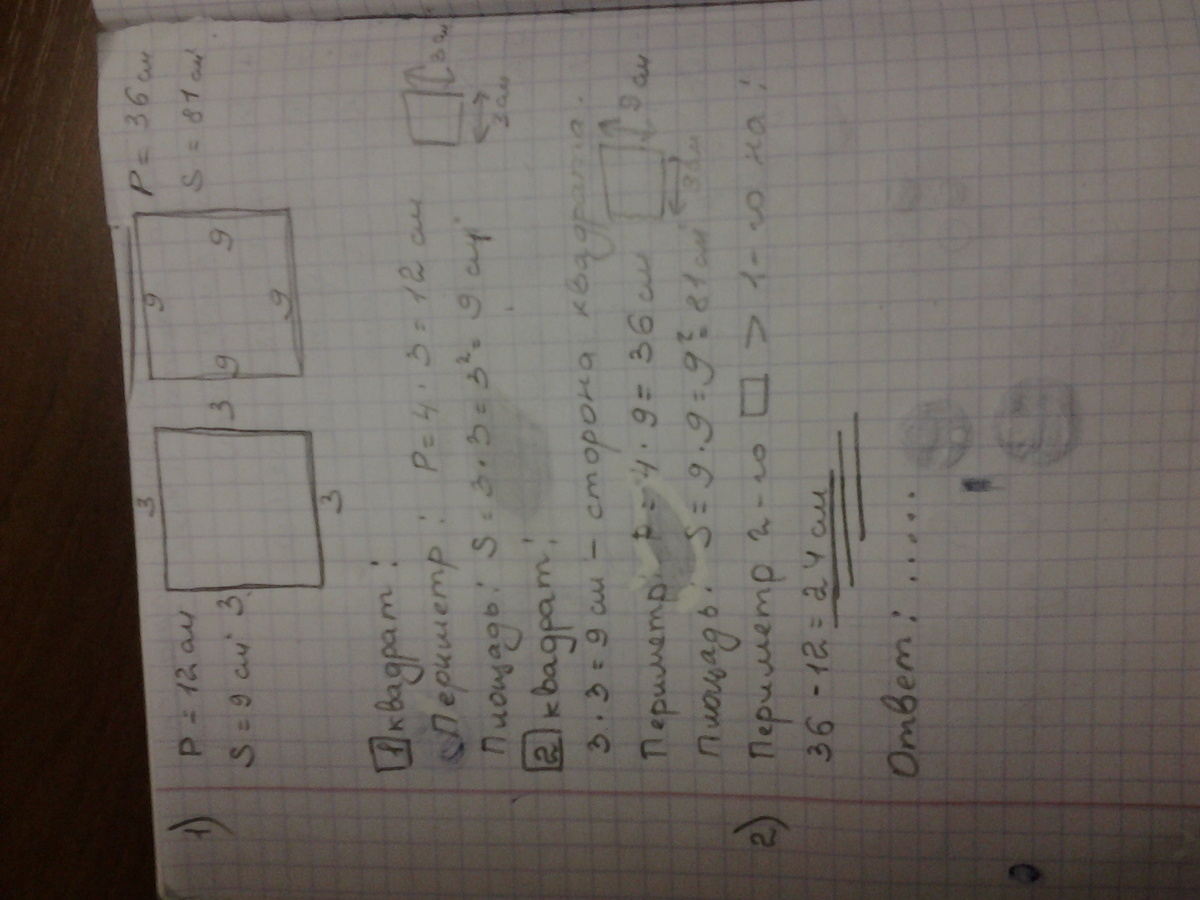 1)
P = 12 см
S = 9 см²
3
3
3
3
9
9
9
9
P = 36 см
S = 81 см²
1 квадрат:
Периметр: P = 4 · 3 = 12 см
3 см
3 см
Площадь: S = 3 · 3 = 3² = 9 см²
2 квадрат:
3 · 3 = 9 см - сторона квадрата.
Периметр: P = 4 · 9 = 36 см
9 см
9 см
Площадь: S = 9 · 9 = 9² = 81 см²
2) Периметр 2-го □ > 1-го на:
36 - 12 = 24 см
Ответ: ......